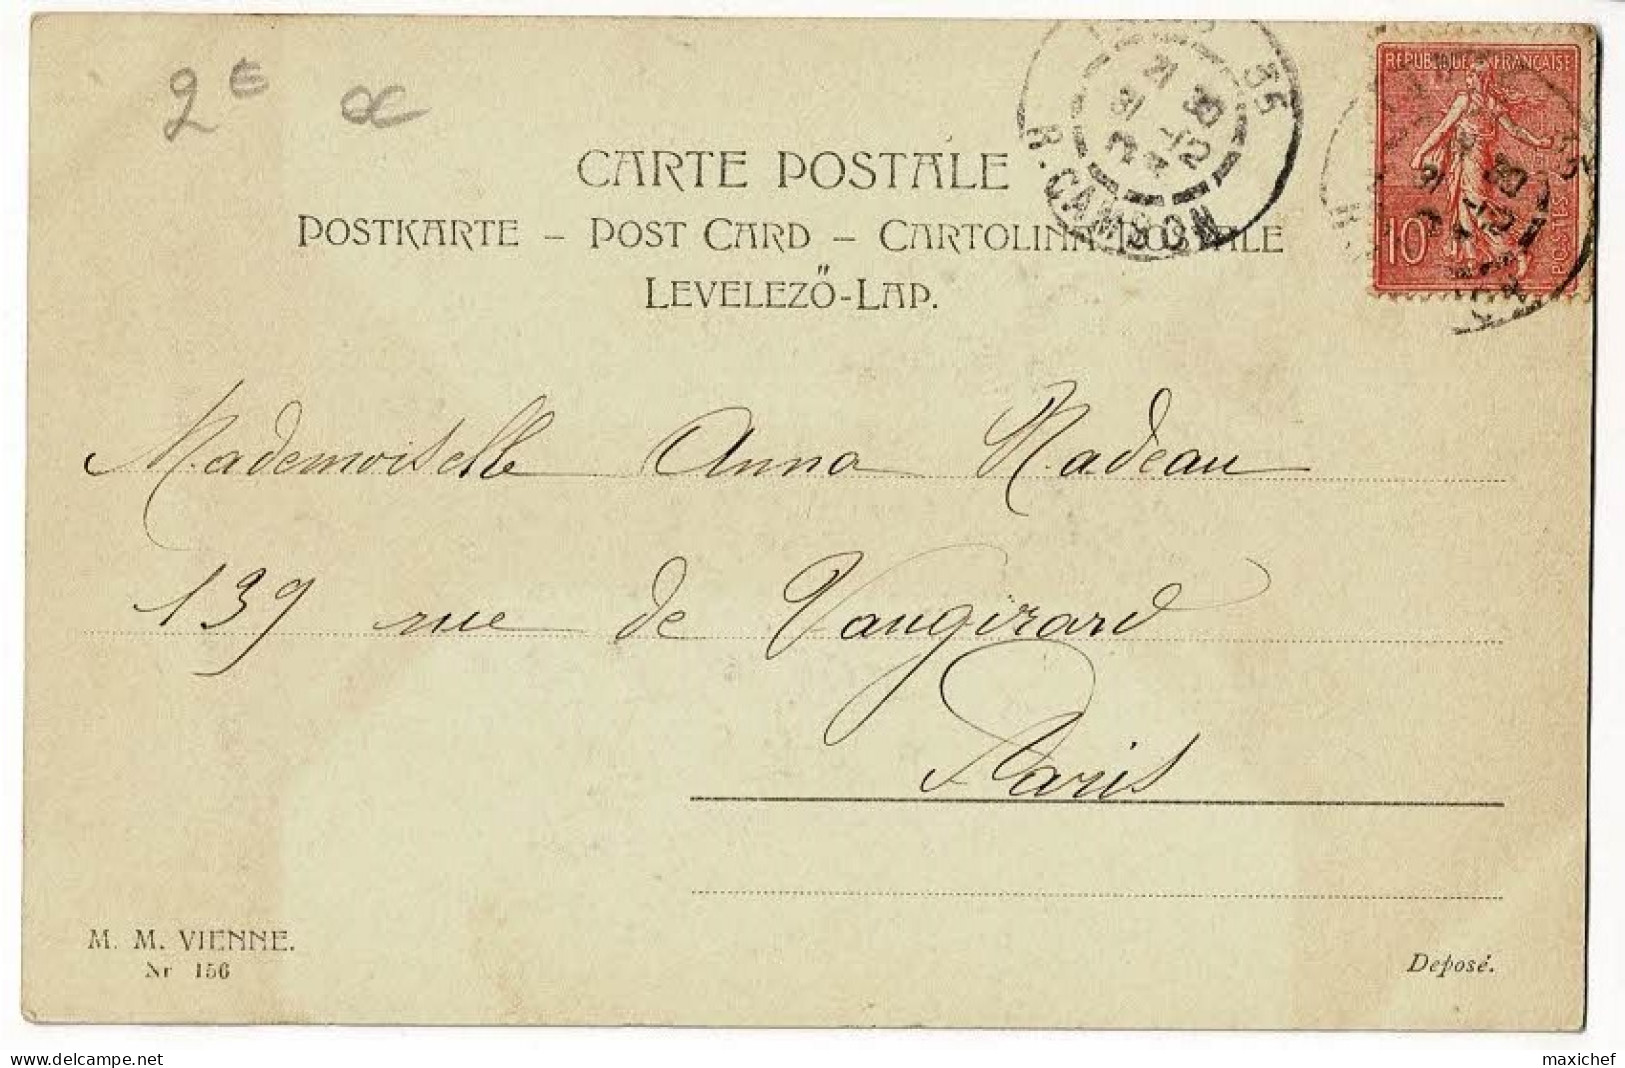 2€
CARTE POSTALE
POSTKARTE – POST CARD – CARTOLINA POSTALE
LEVELEZŐ-LAP.
35
R. CAMBON
REPUBLIQUE FRANÇAISE
10
POSTES
Mademoiselle Anna Nadeau
139 rue de Vaugirard
Paris
M. M. VIENNE.
Nr 156
Deposé.
www.delcampe.net
maxichef